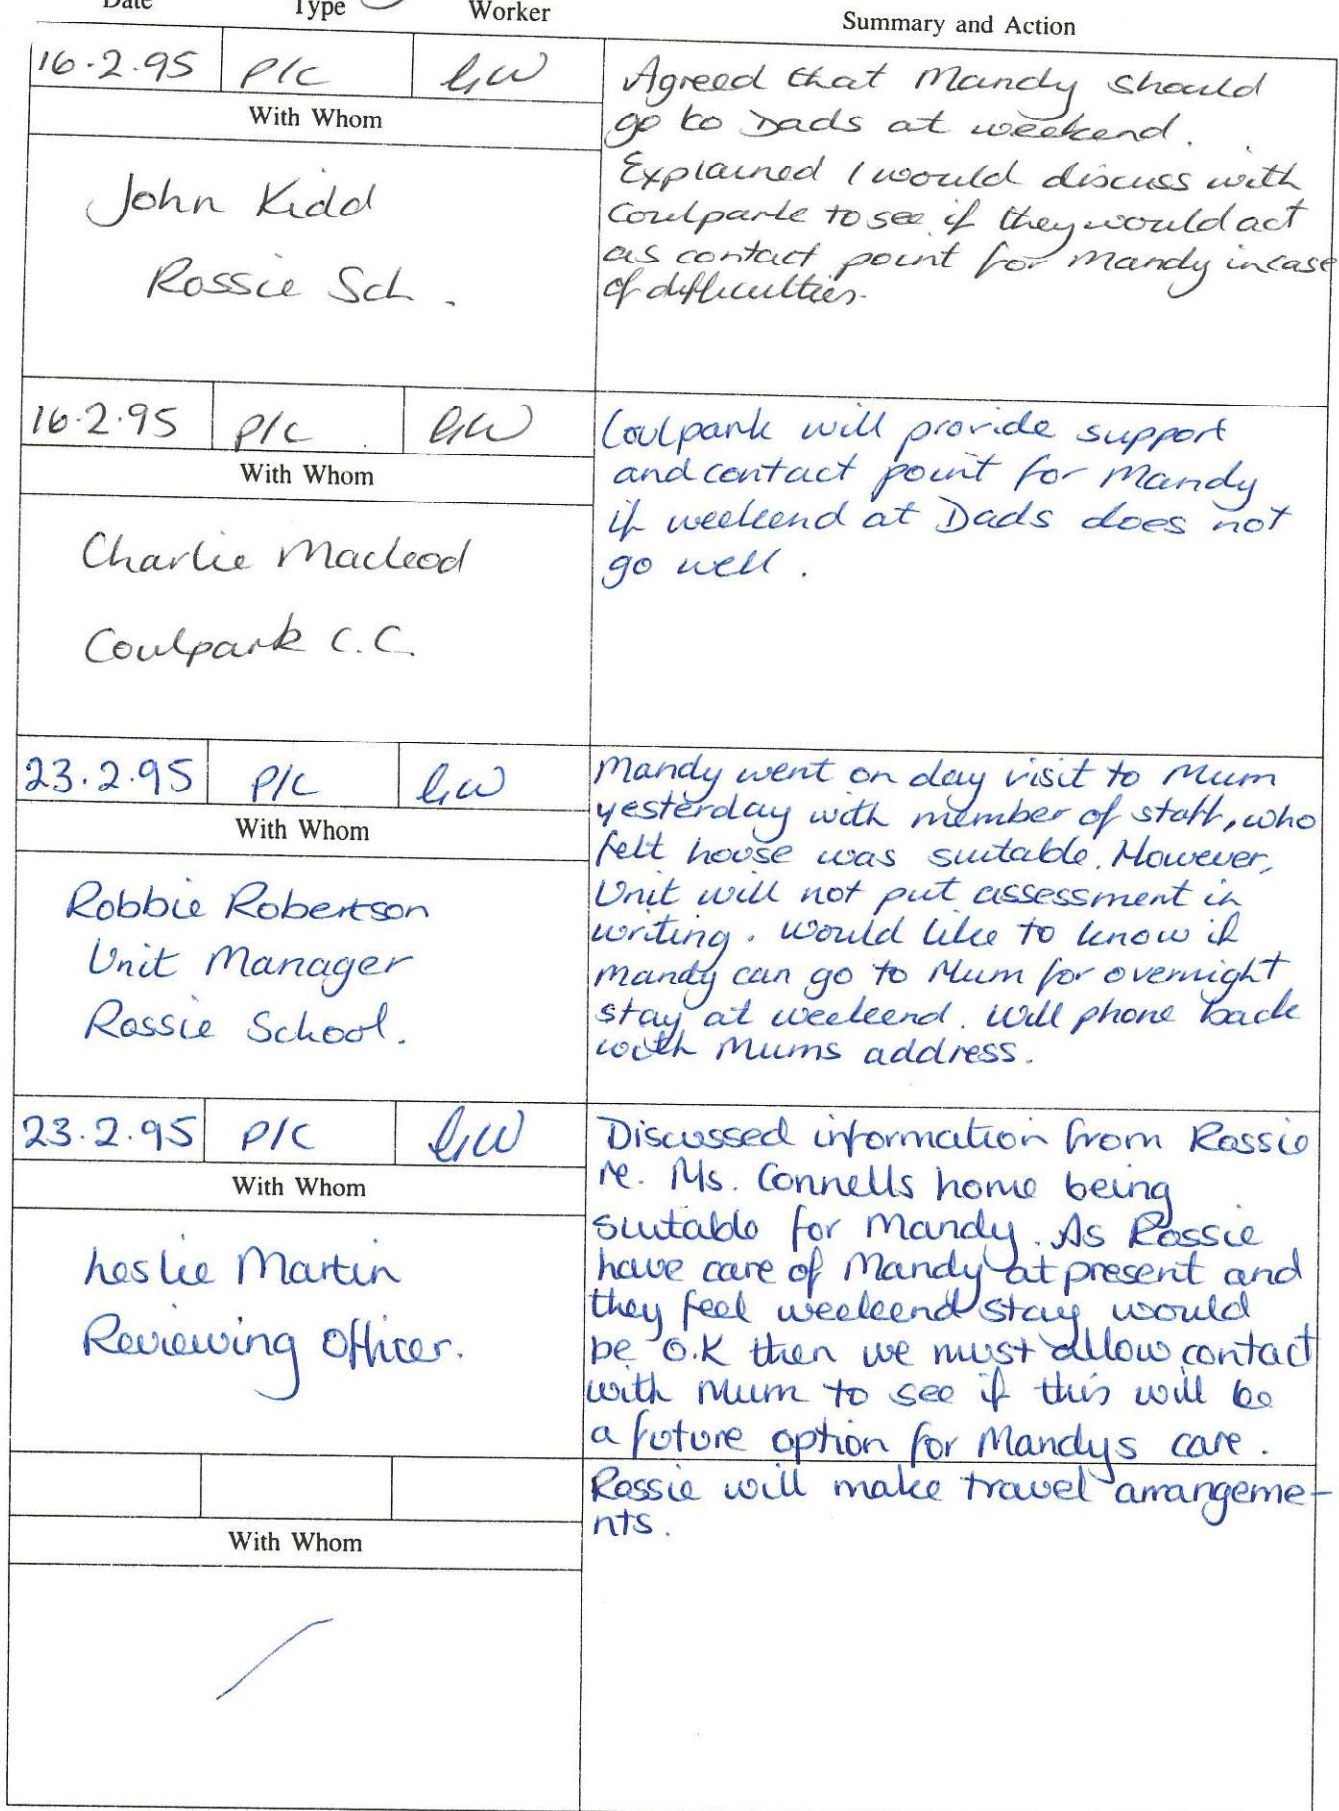 Date Type Worker Summary and Action
16.2.95 P/C GW
With Whom
John Kidd
Rossie Sch.
Agreed that Mandy should
go to Dads at weekend.
Explained I would discuss with
Coulparke to see if they would act
as contact point for Mandy incase
of difficulties.
16.2.95 P/C GW
With Whom
Charlie Macleod
Coulpark C.C.
Coulpark will provide support
and contact point for Mandy
if weekend at Dads does not
go well.
23.2.95 P/C GW
With Whom
Robbie Robertson
Unit Manager
Rossie School.
Mandy went on day visit to Mum
yesterday with member of staff, who
felt house was suitable. However,
Unit will not put assessment in
writing. Would like to know if
Mandy can go to Mum for overnight
stay at weekend. Will phone back
with Mums address.
23.2.95 P/C GW
With Whom
Leslie Martin
Reviewing Officer.
Discussed information from Rossie
re. Ms. Connells home being
suitable for Mandy. As Rossie
have care of Mandy at present and
they feel weekend stay would
be O.K then we must allow contact
with Mum to see if this will be
a future option for Mandys care.
Rossie will make travel arrangeme-
nts.
With Whom